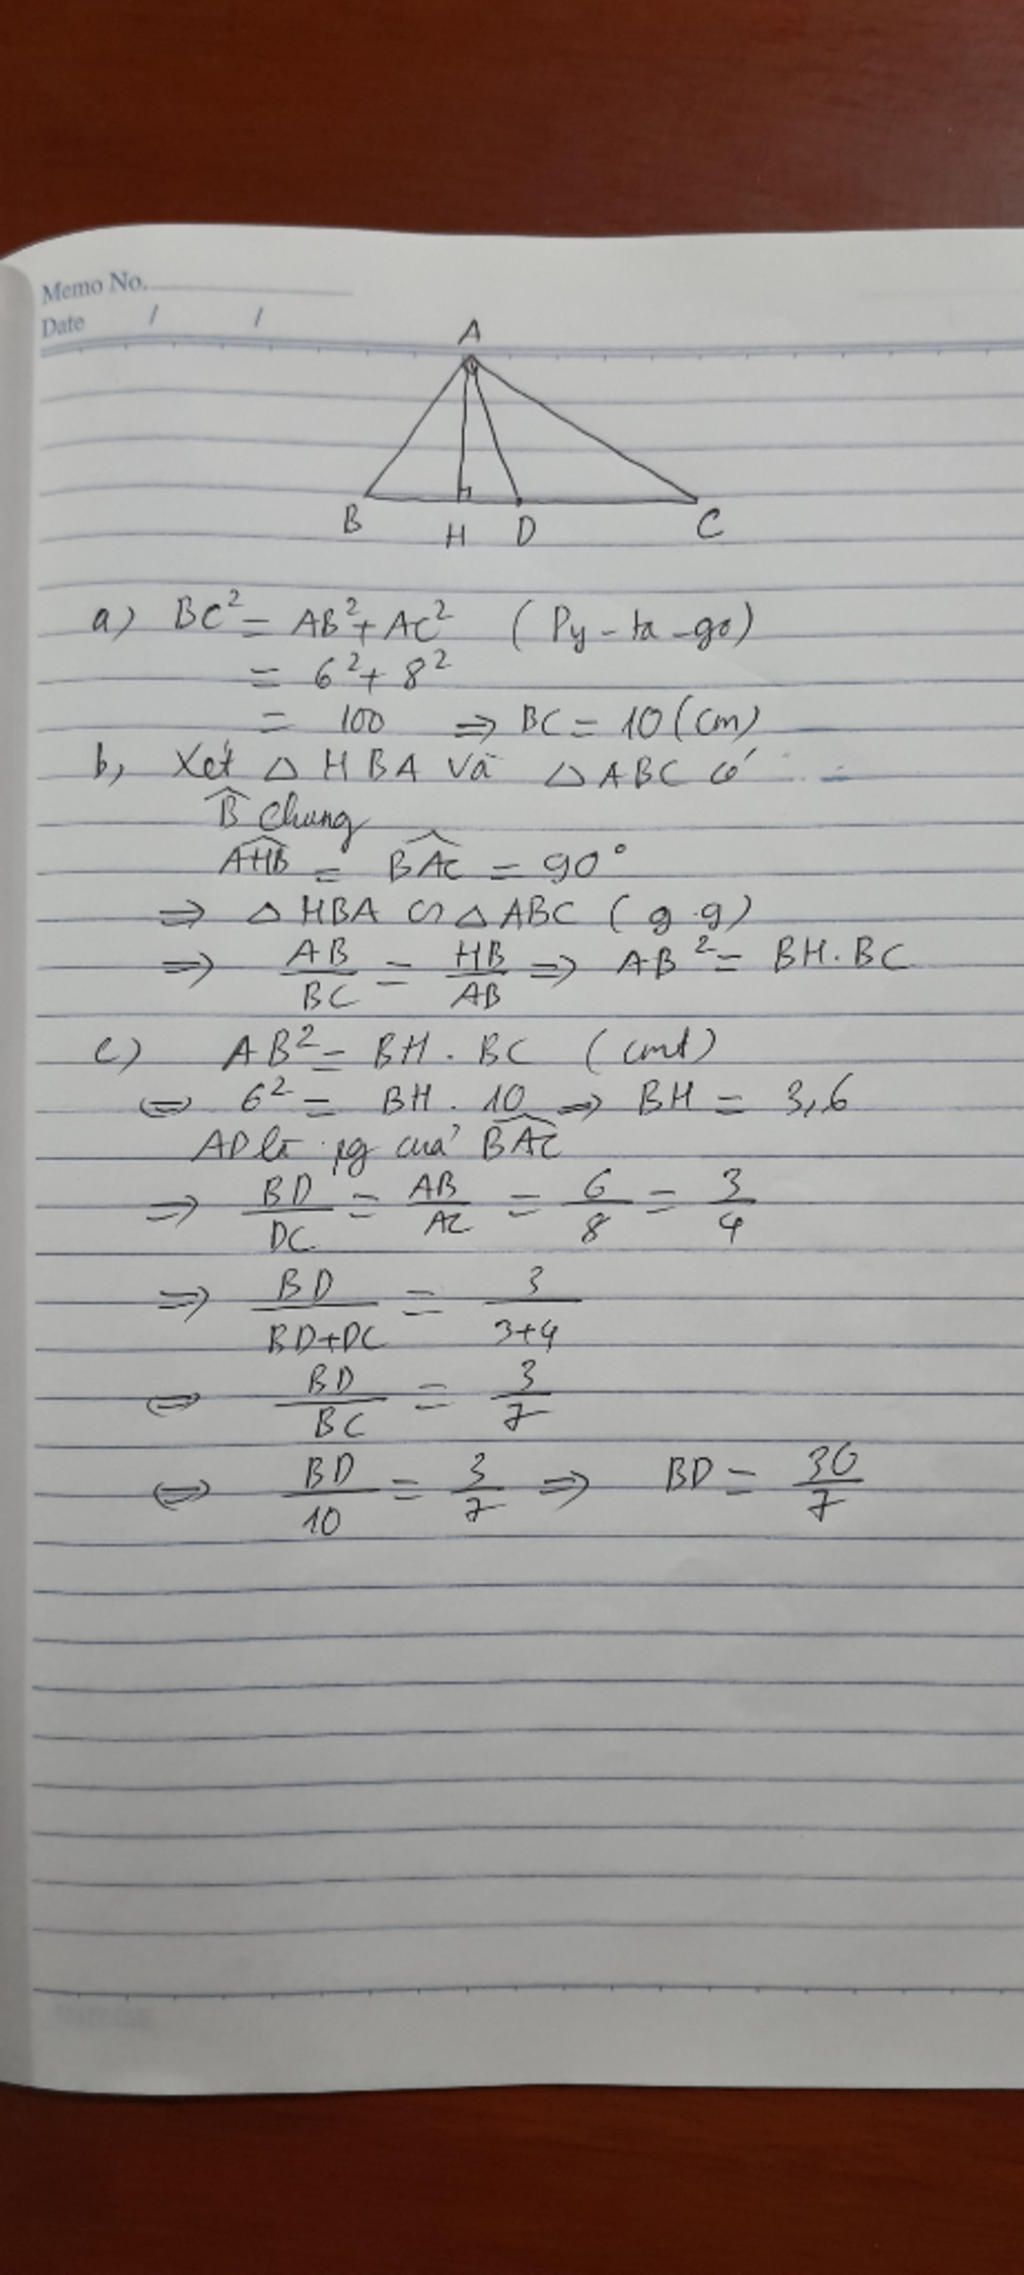 Memo No.
Date / /
A
B H D C
a) BC² = AB² + AC² (Py-ta-go)
= 6² + 8²
= 100 => BC = 10 (cm)
b, Xét △ HBA và △ ABC có
B̂ chung
\widehat{AHB} = \widehat{BAC} = 90°
=> △ HBA ∽ △ ABC (g.g)
=> AB/BC = HB/AB => AB² = BH.BC
c) AB² = BH . BC (cmt)
<=> 6² = BH . 10 => BH = 3,6
AD là pg của \widehat{BAC}
=> BD/DC = AB/AC = 6/8 = 3/4
=> BD/(BD+DC) = 3/(3+4)
<=> BD/BC = 3/7
<=> BD/10 = 3/7 => BD = 30/7